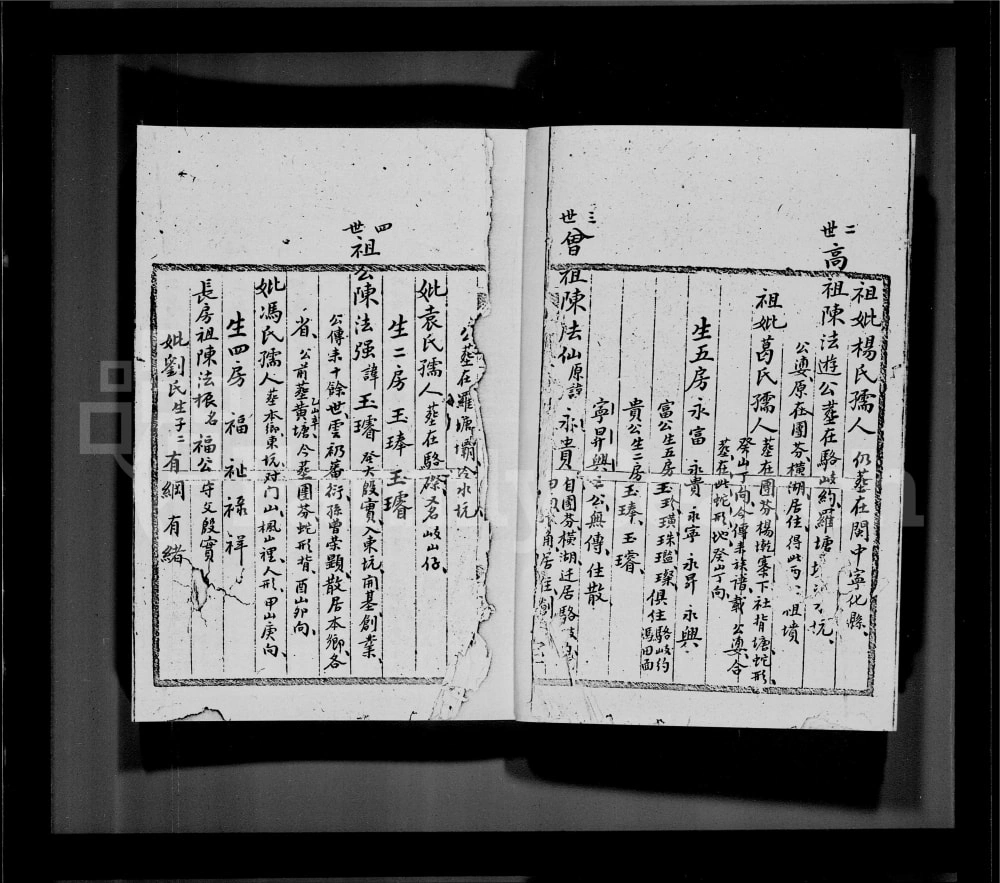 祖妣楊氏孺人 仍墓在閩中寧化縣、
二世高祖陳法遊公墓在駱岐約羅塘
公婆原在圑芬橫湖居住、得此兩 祖墳
祖妣葛氏孺人 墓在圑芬楊 寨下社背塘蛇形、
癸山丁向、今傳來族譜載 公婆合
墓在此蛇形地癸山丁向
生五房 永富 永貴 永寧 永昇 永興
富公生五房玉珍、璜、珠、璁、璨、俱住駱岐約
馮田面
貴公生二房玉琫、玉璿、
寧昇興三公無傳、住散
三世曾祖陳法仙原諱永貴 自圑芬橫湖迁居駱岐
公墓在羅塘壩冷水坑
妣袁氏孺人 墓在駱 名岐山仔、
生二房 玉琫 玉璿
四世祖公陳法强諱玉璿 癸大殷實、入東坑、開基創業、
公傳来十餘世、雲礽蕃衍、孫曾榮顯、散居本鄉、各
省、公前墓黄塘、乙山辛、今墓圑芬蛇形背、酉山卯向、
妣馮氏孺人 墓本鄉東坑对门山、楓山裡人形、甲山庚向、
生四房 福 祉 祿 祥
長房祖陳法振名福公 守父殷實
妣劉氏生子二 有綱 有緒